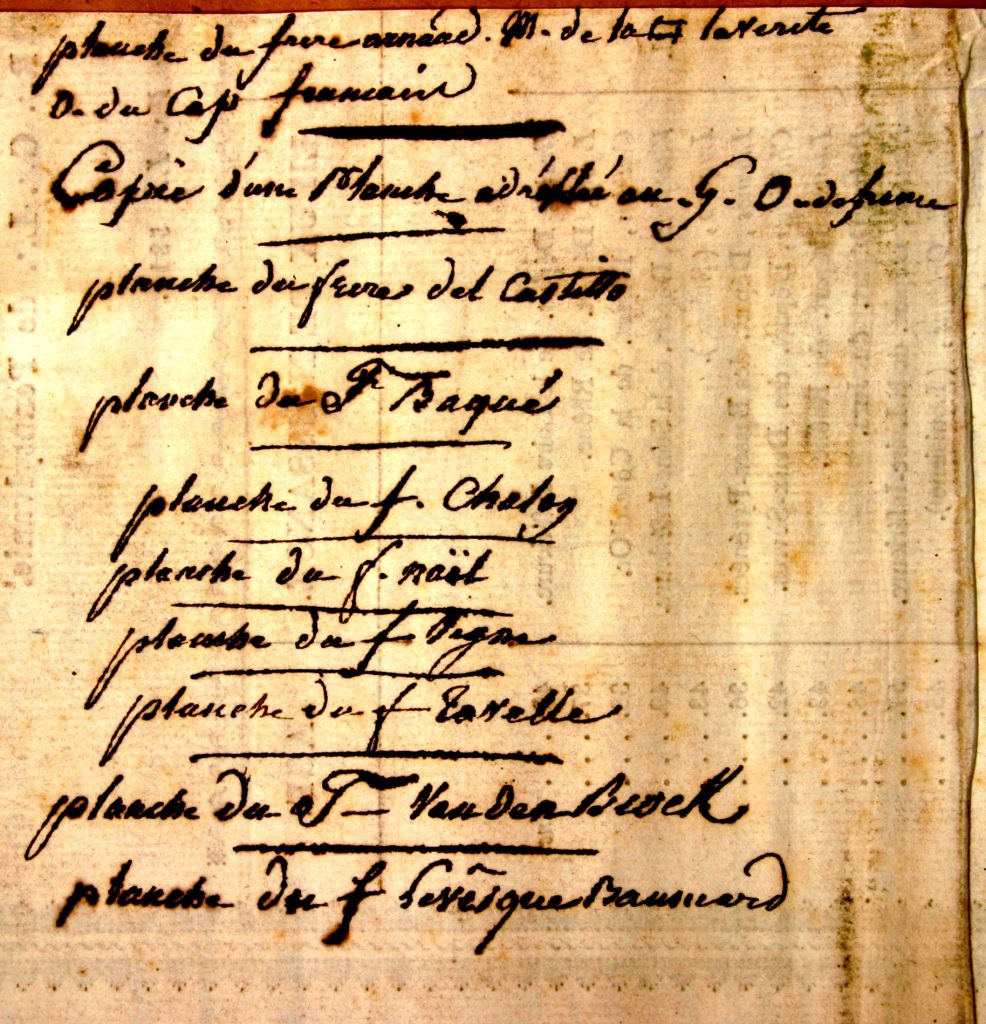 planche du frere arnaud. M. de la ▭ la verité
O. du Cap francais
Copie d'une Planche adréssée au G. O. de france
planche du frere del Castillo
planche du f Baqué
planche du f. Chatoy
planche du f. naöl
planche du f Vigne
planche du f tavelle
planche du f Van Den Brock
planche du f levêsque Baumard